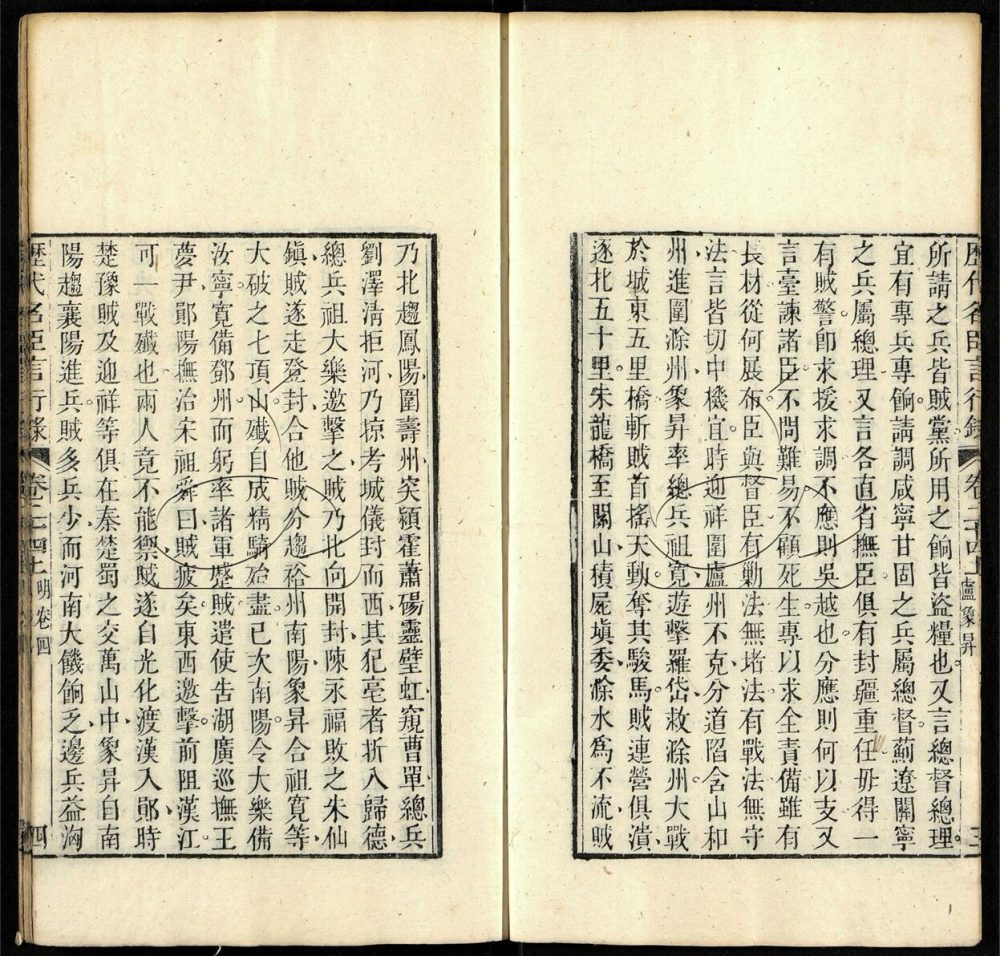 歷代名臣言行錄 卷二四上 盧象昇 三
所請之兵皆賊黨所用之餉皆盜糧也又言總督總理。
宜有專兵專餉請調咸寧甘固之兵屬總督薊遼關寧
之兵屬總理又言各直省撫臣俱有封疆重任毋得一
有賊警卽求援求調不應則吳越也分應則何以支又
言臺諫諸臣不問難易不顧死生專以求全責備雖有
長材從何展布臣與督臣有勦法無堵法有戰法無守
法言皆切中機宜時迎祥圍廬州不克分道陷含山和
州進圍滁州象昇率總兵祖寬遊擊羅岱救滁州大戰
於城東五里橋斬賊首搖天動奪其駿馬賊連營俱潰、
逐北五十里朱龍橋至關山積屍塡委滁水爲不流賊
乃北趨鳳陽圍壽州突潁霍蕭碭靈璧虹窺曹單總兵
劉澤淸拒河乃掠考城儀封而西其犯亳者折入歸德、
總兵祖大樂邀擊之賊乃北向開封陳永福敗之朱仙
鎭賊遂走登封合他賊分趨裕州南陽象昇合祖寬等、
大破之七頂山殲自成精騎殆盡已次南陽令大樂備
汝寧寬備鄧州而躬率諸軍蹙賊遣使告湖廣巡撫王
夢尹鄖陽撫治宋祖舜曰賊疲矣東西邀擊前阻漢江
可一戰殲也兩人竟不能禦賊遂自光化渡漢入鄖時
楚豫賊及迎祥等俱在秦楚蜀之交萬山中象昇自南
陽趨襄陽進兵賊多兵少而河南大饑餉乏邊兵益洶
歷代名臣言行錄 卷二四上 明卷四 四